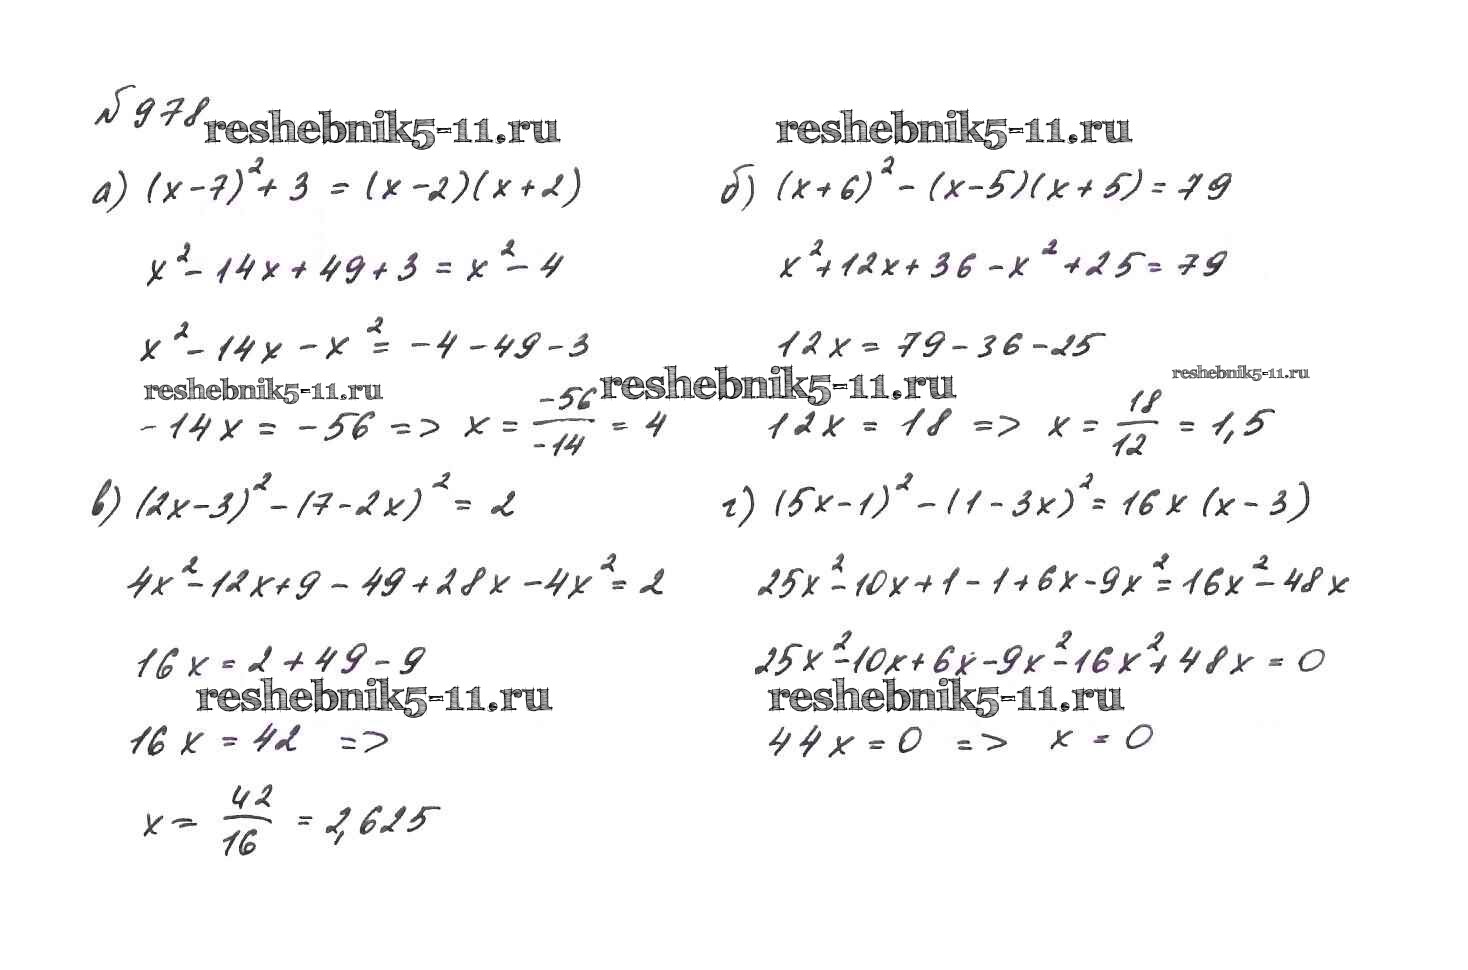 №978
reshebnik5-11.ru
reshebnik5-11.ru
а) (x-7)²+3 = (x-2)(x+2)
x²-14x+49+3 = x²-4
x²-14x-x² = -4-49-3
reshebnik5-11.ru
reshebnik5-11.ru
-14x = -56 => x = -56/-14 = 4
б) (x+6)²-(x-5)(x+5)=79
x²+12x+36-x²+25=79
12x = 79-36-25
reshebnik5-11.ru
12x = 18 => x = 18/12 = 1,5
в) (2x-3)²-(7-2x)²=2
4x²-12x+9-49+28x-4x²=2
16x=2+49-9
reshebnik5-11.ru
16x = 42 =>
x = 42/16 = 2,625
г) (5x-1)²-(1-3x)²=16x(x-3)
25x²-10x+1-1+6x-9x²=16x²-48x
25x²-10x+6x-9x²-16x²+48x=0
reshebnik5-11.ru
44x=0 => x=0